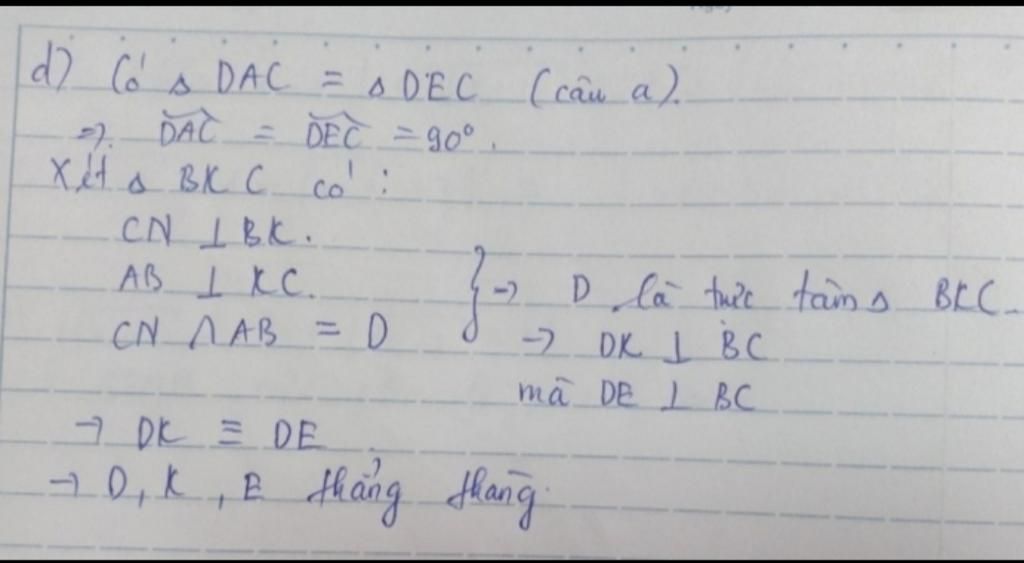 d) Có △ DAC = △ DEC (câu a).
⇒ DAC = DEC = 90°.
Xét △ BKC có:
CN ⊥ BK.
AB ⊥ KC.
CN ∩ AB = D } → D là trực tâm △ BKC.
→ DK ⊥ BC
mà DE ⊥ BC
→ DK ≡ DE
→ D, K, E thẳng hàng.